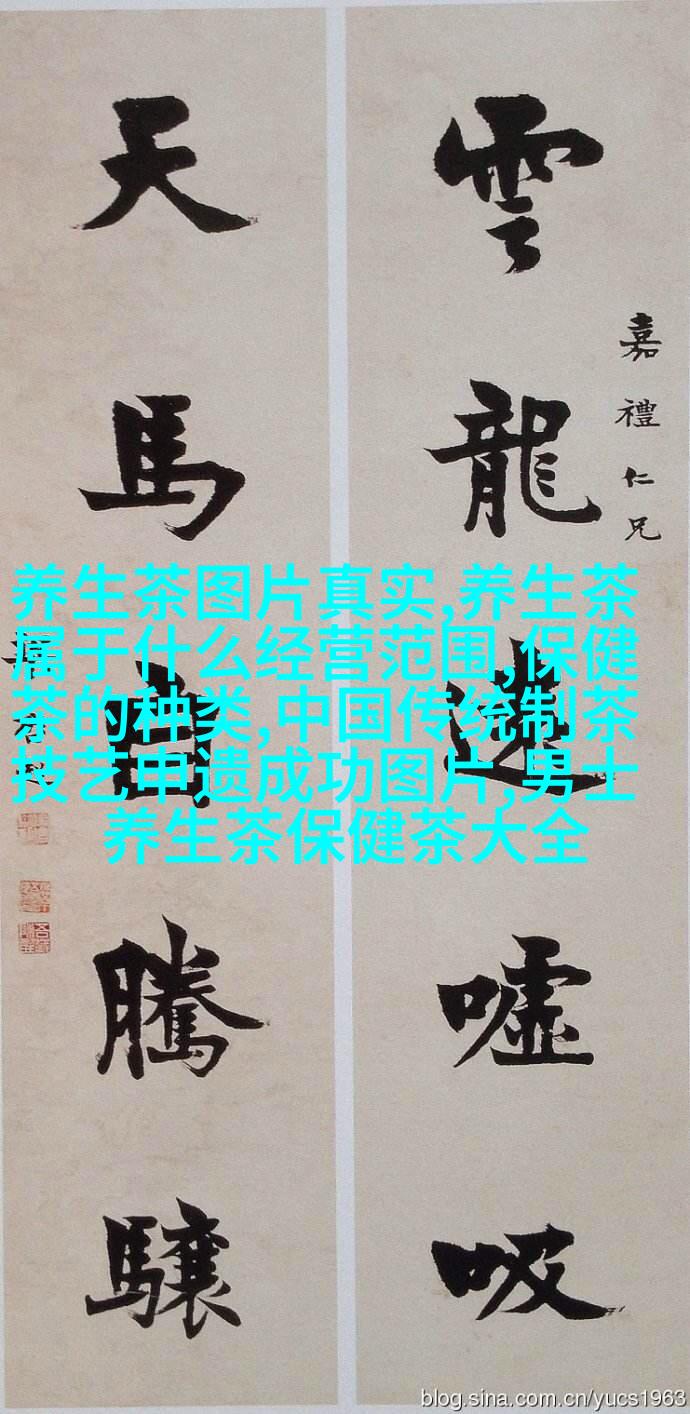 雲龍迭噓吸
嘉禮仁兄
天馬自騰驤
养生茶图片真实,养生茶
属于什么经营范围,保健
茶的种类,中国传统制茶
技艺申遗成功图片,男士
养生茶保健茶大全
blog.sina.com.cn/yucs1963